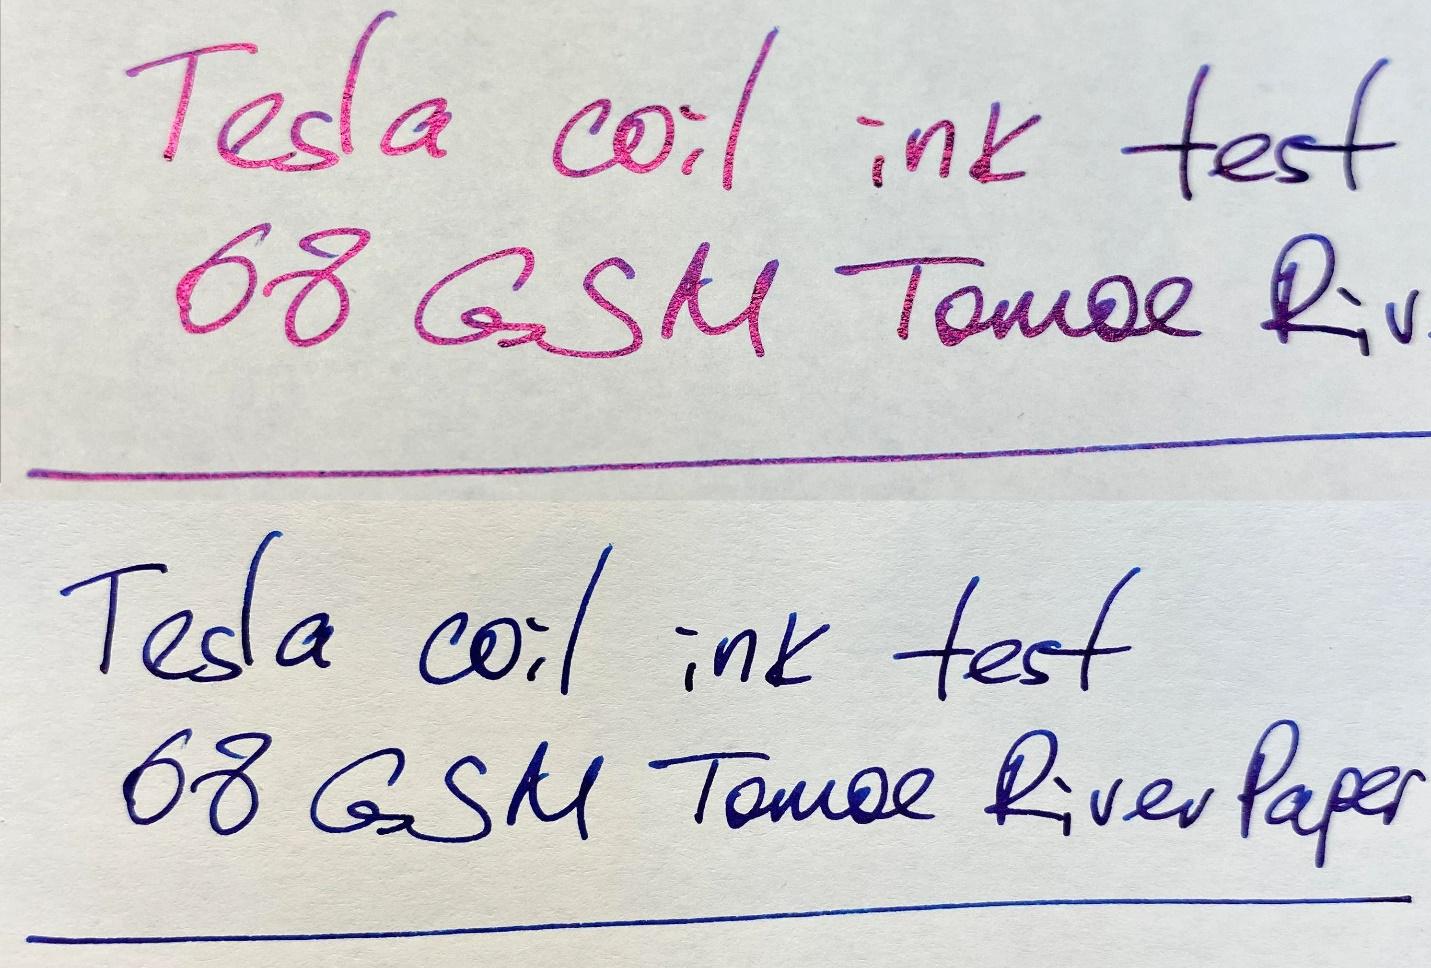 Tesla coil ink test
68 GSM Tomoe Riv
Tesla coil ink test
68 GSM Tomoe River Paper